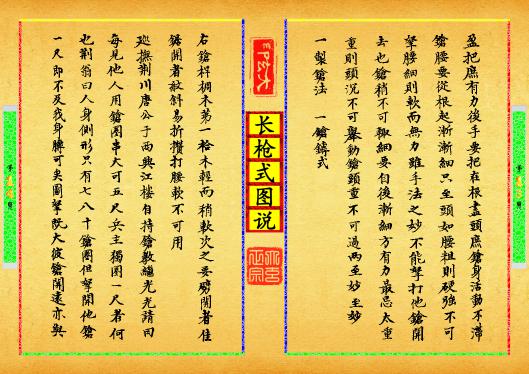 盈把庶有力後手要把在根盡頭庶鎗身活動不滯
鎗腰要從根起漸漸細只至頭如腰粗則硬強不可
拏腰細則軟而無力雖手法之妙不能拏打他鎗開
去也鎗稍不可輒細要自後漸細方有力最忌太重
重則頭沉不可舉動鎗頸重不可過兩至妙至妙
一製鎗法 一鎗鏄式
长枪式图说
右鎗桿椆木第一柗木輕而稍軟次之要劈開者佳
鋸開者紋斜易折攢打腰軟不可用
廵撫荆川唐公于西興江樓自持鎗教繼光光請囙
每見他人用鎗圈串大可五尺兵主獨圈一尺者何
也荆翁曰人身側形只有七八十鎗圈但拏開他鎗
一尺即不及我身膊可矣圈拏既大彼鎗開遠亦與